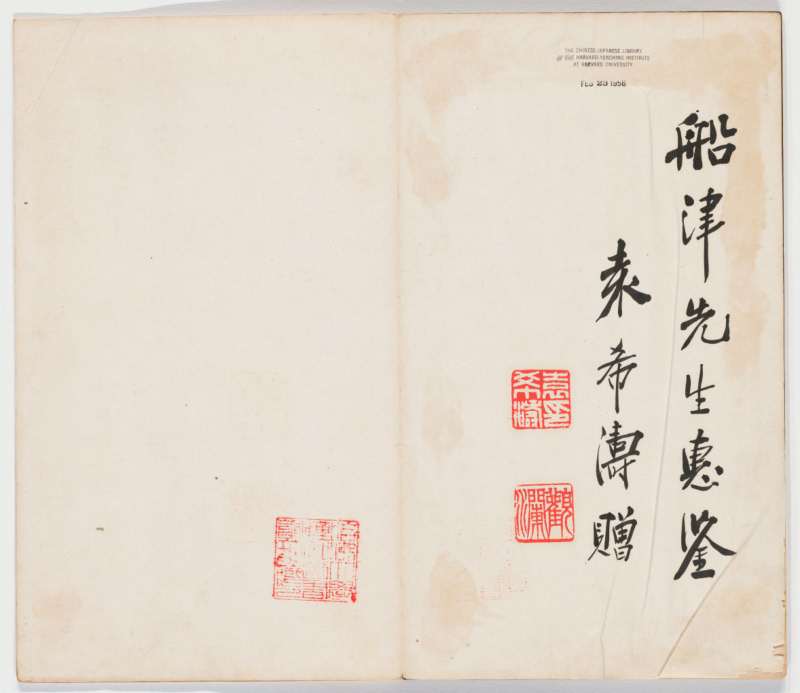 THE CHINESE-JAPANESE LIBRARY
OF THE HARVARD-YENCHING INSTITUTE
AT HARVARD UNIVERSITY
FEB 20 1956
船津先生惠鉴
袁希濤贈
袁希濤印
觀瀾